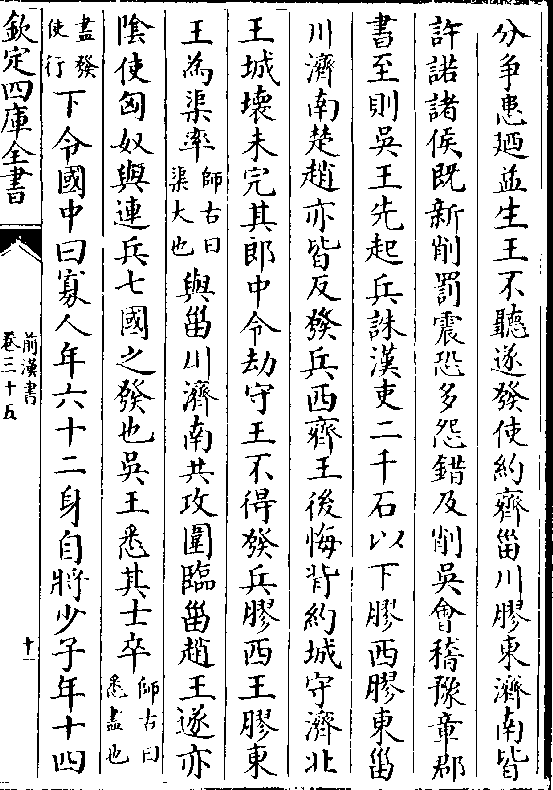 分爭患廼益生王不聽遂發使約齊菑川膠東濟南皆
許諾諸侯既新削罰震恐多怨錯及削吳會稽豫章郡
書至則吳王先起兵誅漢吏二千石以下膠西膠東菑
川濟南楚趙亦皆反發兵西齊王後悔背約城守濟北
王城壞未完其郎中令劫守王不得發兵膠西王膠東
王為渠率師古曰渠大也與菑川濟南共攻圍臨菑趙王遂亦
陰使匈奴與連兵七國之發也吳王悉其士卒師古曰悉盡也
盡發使行下令國中曰寡人年六十二身自將少子年十四
欽定四庫全書
前漢書
卷三十五
十一